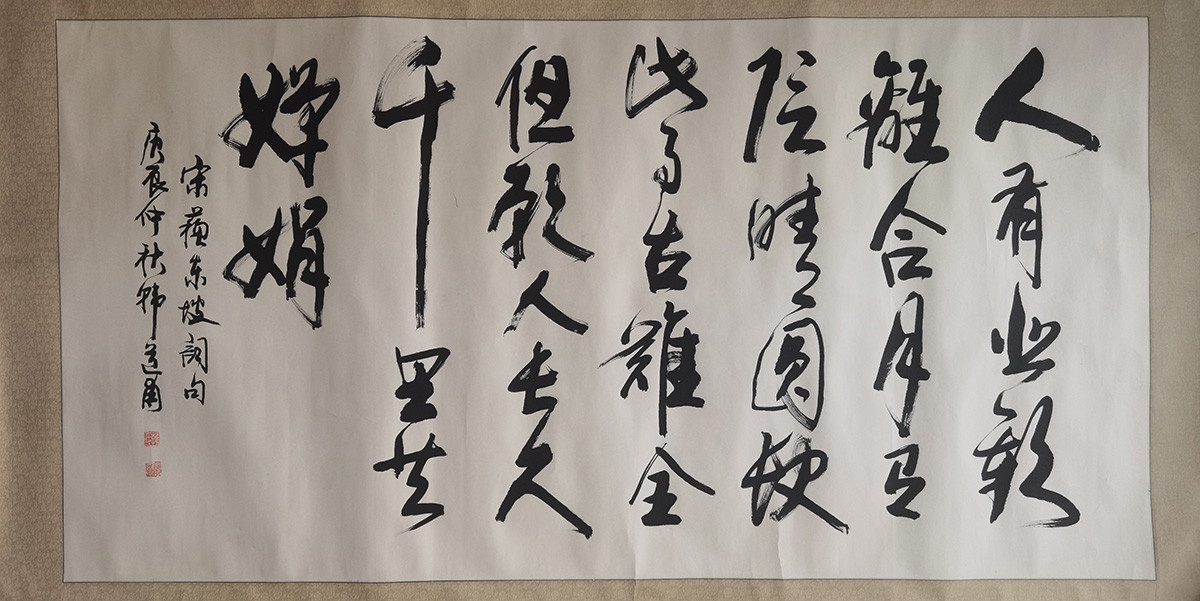 人有悲歡
離合月有
陰晴圓缺
此事古難全
但願人長久
千里共
嬋娟
宋蘇東坡詞句
庚辰仲秋韓道甫